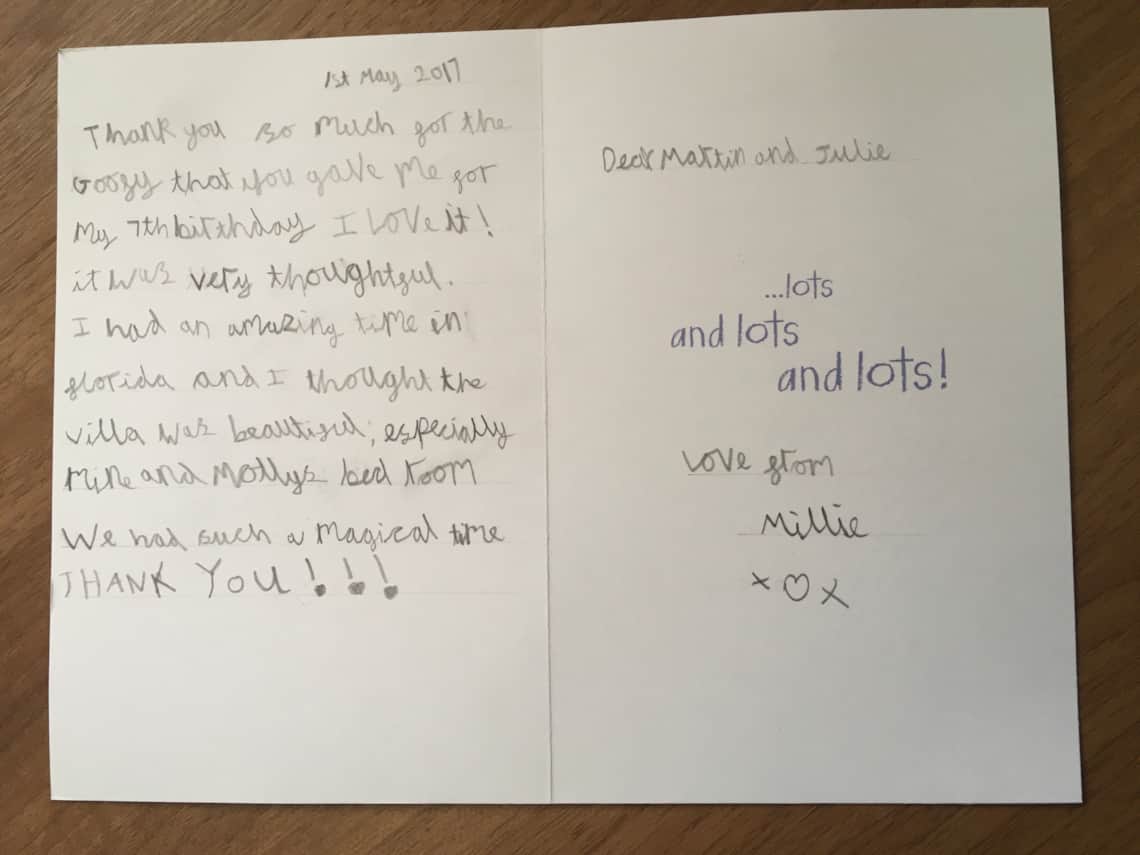 1st May 2017
Thank you so much for the
Goofy that you gave me for
My 7th birthday I Love it!
it was very thoughtful.
I had an amazing time in
florida and I thought the
villa was beautiful, especially
Mine and Mollys bed room
We had such a magical time
THANK YOU!!!
Dear Martin and Julie
...lots
and lots
and lots!
Love from
Millie
x♡x